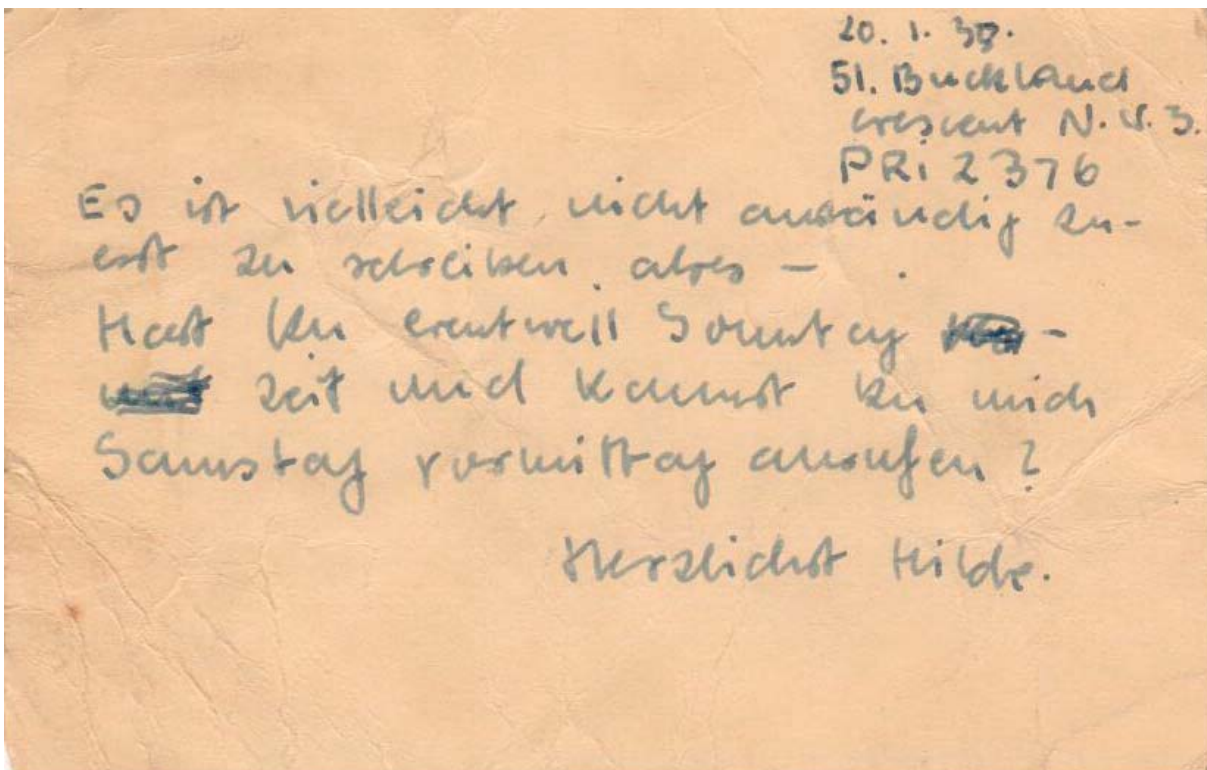 20. 1. 39.
51. Buckland
crescent N.W.3.
PRi 2376
Es ist vielleicht nicht anständig zu-
erst zu schreiben, aber –
Hast Du eventuell Sonntag
Zeit und kannst Du mich
Samstag vormittag anrufen?
Herzlichst Hilde.